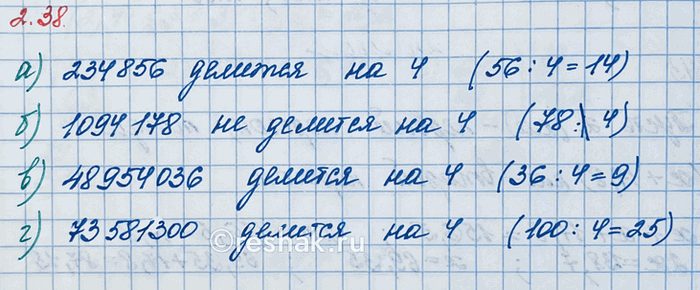 2.38.
а) 234856 делится на 4 (56 : 4 = 14)
б) 1094178 не делится на 4 (78 :| 4)
в) 48954036 делится на 4 (36 : 4 = 9)
г) 73581300 делится на 4 (100 : 4 = 25)
©reshak.ru